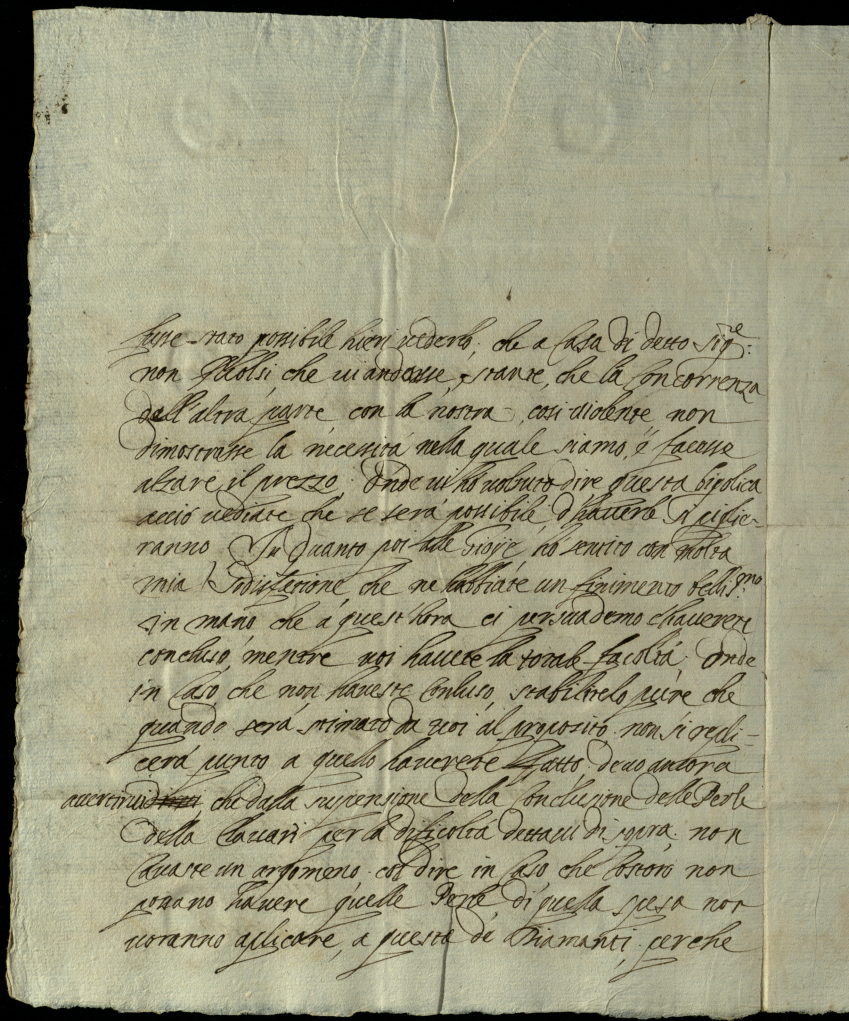 fusse stato possibile hieri vederlo, che a Casa di detto Sig.re
non volsi che vi andasse, stante, che la Concorrenza
dell'altra parte con la nostra, cosi dicente non
dimostrasse la necessitá nella quale siamo, é facesse
alzare il prezzo. Onde vi ho voluto dire questa
acció vediate che se será possibile d'haverle si piglie=
ranno. In quanto poi alle Gioje, hó sentito con molta
mia Sodisfatione, che ne habbiate un finimento belliss.mo
in mano, che á quest'hora ci persuademo l'haverete
concluso, mentre voi havete la totale facoltá. Onde
in Caso, che non haveste Concluso, stabilitelo pure che
quando será stimato da voi al proposito non si repli=
cerá punto a quello haverete fatto. devo ancora
avertirvi che dalla suspensione della Conclusione delle Perle
della per la dificoltá dettavi di sopra. non
Cavaste un argomeno. col dire in Caso che Costoro non
possano havere quelle Perle di quella spesa non
voranno aplicare, a questa de Diamanti, perche